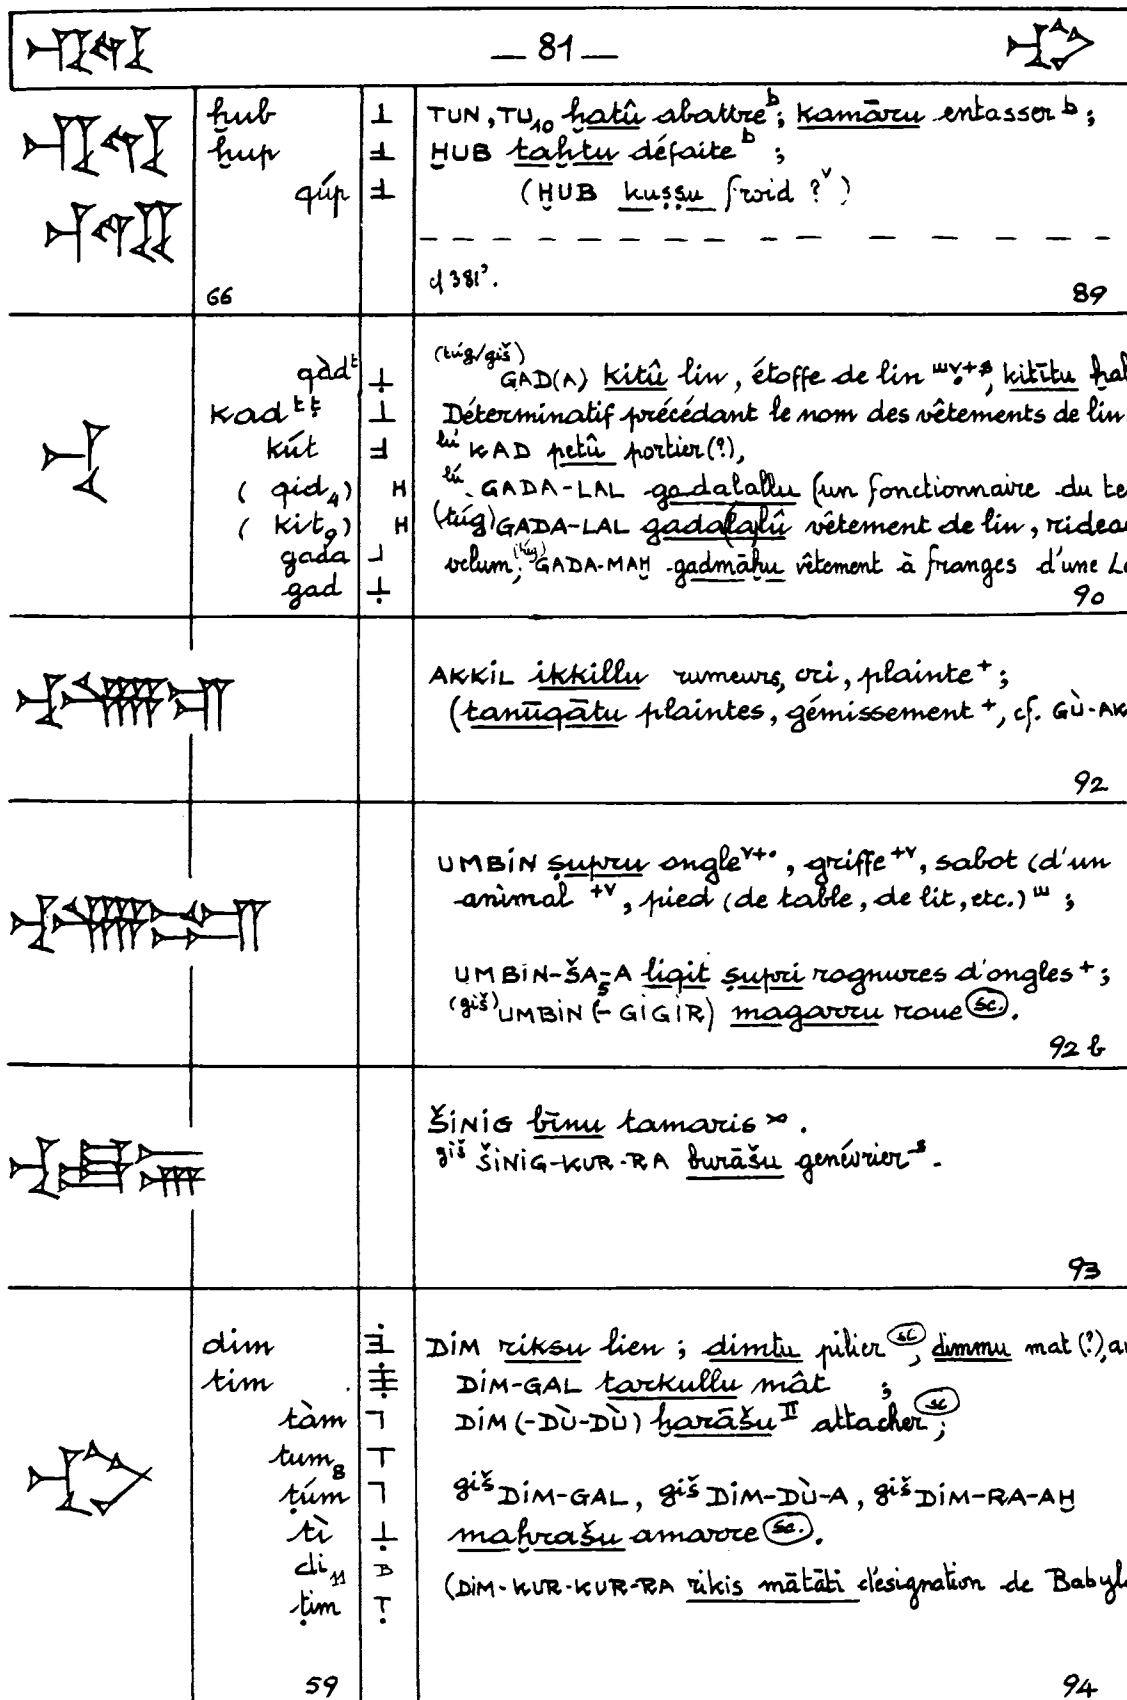 — 81 —
ḫub TUN, TU₁₀ ḫatû abattre ᵇ; kamāru entasser ᵇ;
ḫup ḪUB taḫtu défaite ᵇ;
qúp (ḪUB kuṣṣu froid ?ᵛ)
cf 381'.
66 89
(túg/giš)
qàdᵗ GAD(A) kitû lin, étoffe de lin, kitītu
kad ᵗ ṭ Déterminatif précédant le nom des vêtements de lin
kút ˡú KAD petû portier(?),
(qid₄) H ˡú GADA-LAL gadalallu (un fonctionnaire du te
(kit₉) H (túg) GADA-LAL gada(la)lû vêtement de lin, ridea
gada velum; (túg) GADA-MAḪ gadmāḫu vêtement à franges d'une
gad 90
AKKIL ikkillu rumeurs, cri, plainte ⁺;
(tanūqātu plaintes, gémissement ⁺, cf. GÙ-AK
92
UMBIN ṣupru ongle ᵛ⁺·, griffe ⁺ᵛ, sabot (d'un
animal ⁺ᵛ, pied (de table, de lit, etc.) ᵚ;
UMBIN-ŠA₅-A liqit ṣupri rognures d'ongles ⁺;
(giš) UMBIN (-GIGIR) magarru roue (sc.).
92 b
ŠINIG bīnu tamaris.
giš ŠINIG-KUR-RA burāšu genévrier ⁻ˢ.
93
dim DIM riksu lien; dimtu pilier (sc), dimmu mat (?),
tim DIM-GAL tarkullu mât ;
tàm DIM (-DÙ-DÙ) ḫarāšu ᴵᴵ attacher (sc);
tum₈
ṭúm giš DIM-GAL, giš DIM-DÙ-A, giš DIM-RA-AḪ
tì maḫrašu amarre (sc.).
di₁₁ B (DIM-KUR-KUR-RA rikis mātāti désignation de Babyl
ṭim
59 94